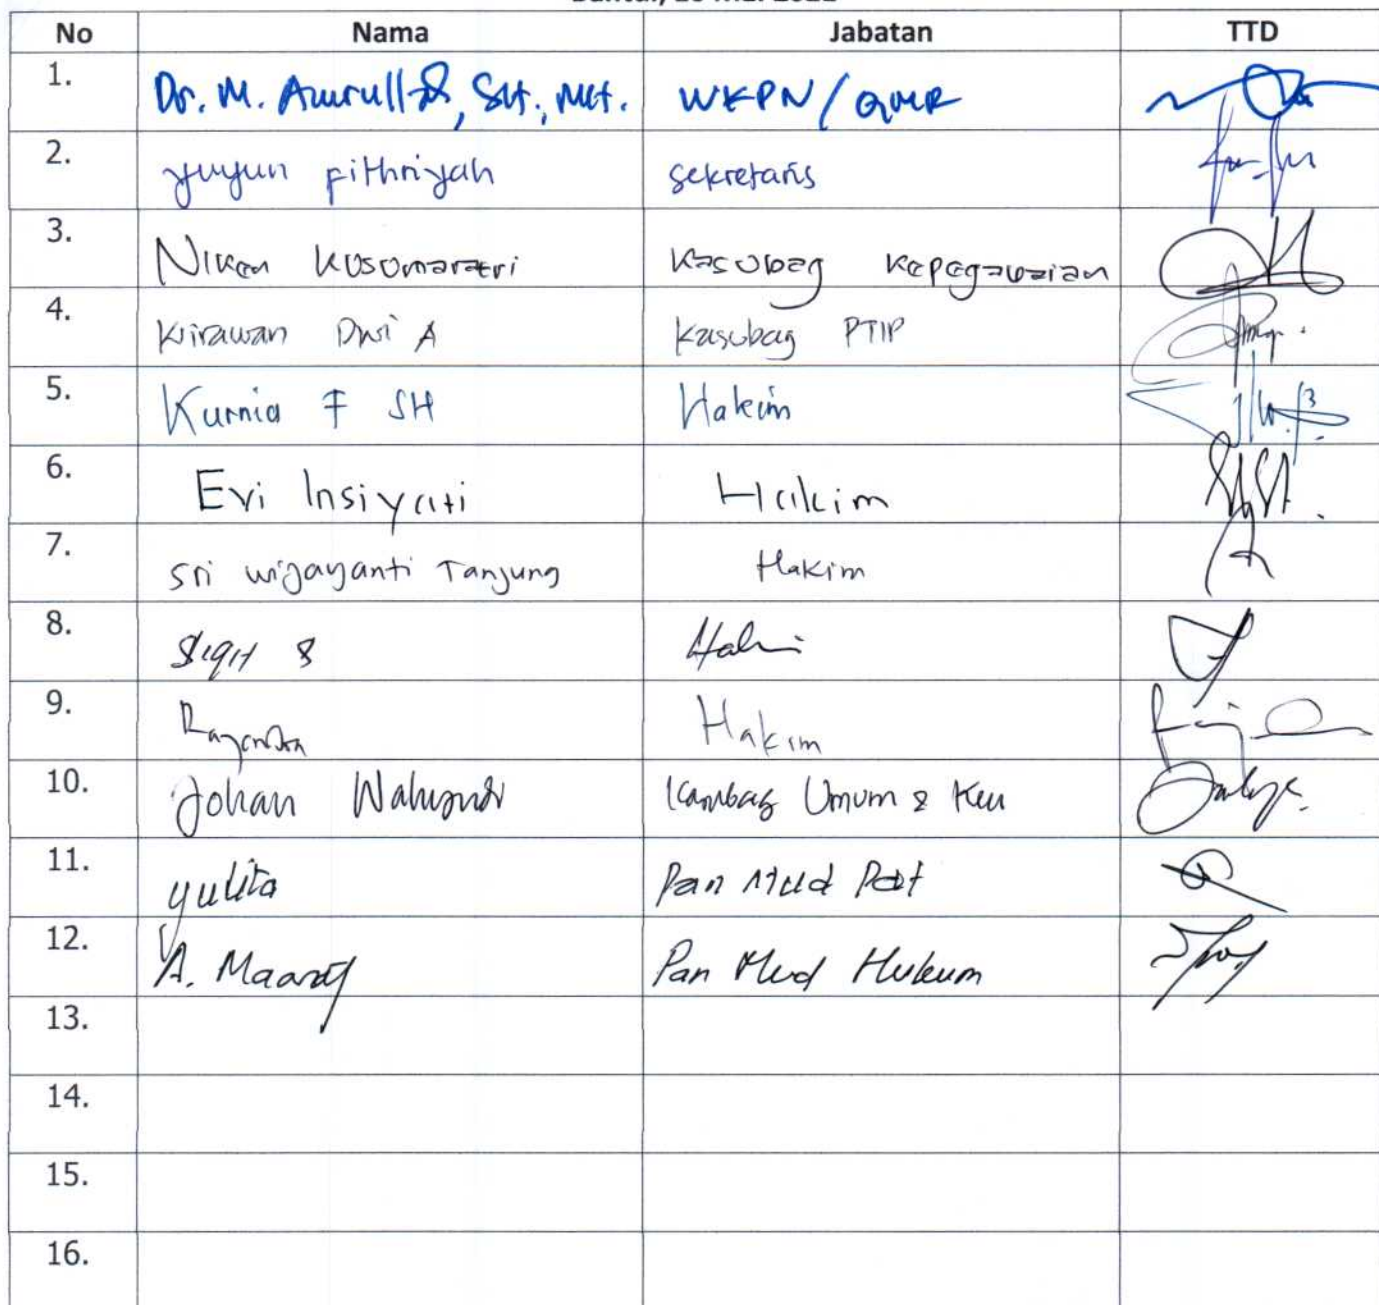 No Nama Jabatan TTD
1. Dr. M. Amrulloh, SH., MH. WKPN / QMR
2. yuyun fithriyah sekretaris
3. Niken Kusumaratri Kasubag Kepegawaian
4. Wirawan Dwi A Kasubag PTIP
5. Kurnia F SH Hakim
6. Evi Insiyati Hakim
7. Sri wijayanti Tanjung Hakim
8. Sigit S Hakim
9. Rajendra Hakim
10. Johan Wahyudi Kasubag Umum & Keu
11. yulita Pan Mud Pdt
12. A. Maarif Pan Mud Hukum
13.
14.
15.
16.